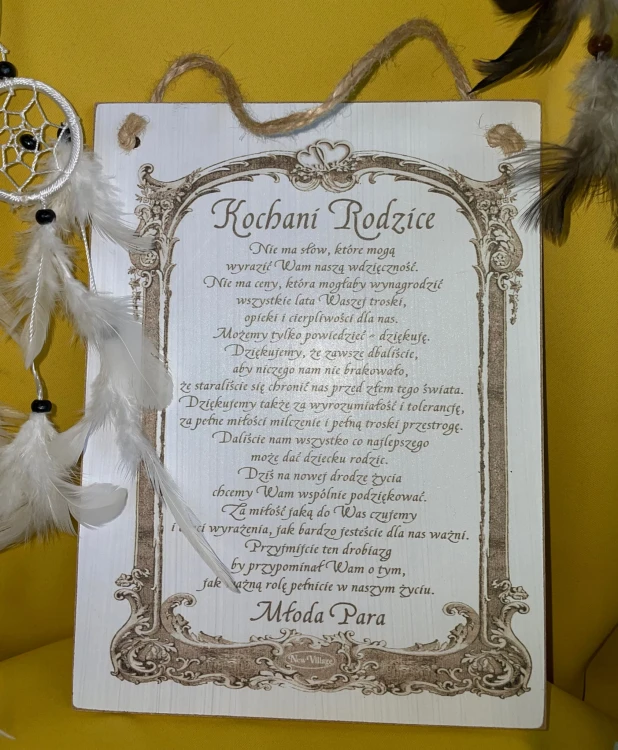 Kochani Rodzice
Nie ma słów, które mogą
wyrazić Wam naszą wdzięczność.
Nie ma ceny, która mogłaby wynagrodzić
wszystkie lata Waszej troski,
opieki i cierpliwości dla nas.
Możemy tylko powiedzieć - dziękuję.
Dziękujemy, że zawsze dbaliście,
aby niczego nam nie brakowało,
że staraliście się chronić nas przed złem tego świata.
Dziękujemy także za wyrozumiałość i tolerancję,
za pełne miłości milczenie i pełną troski przestrogę.
Daliście nam wszystko co najlepszego
może dać dziecku rodzic.
Dziś na nowej drodze życia
chcemy Wam wspólnie podziękować.
Za miłość jaką do Was czujemy
i wyrażenia, jak bardzo jesteście dla nas ważni.
Przyjmijcie ten drobiazg
by przypominał Wam o tym,
jak ważną rolę pełnicie w naszym życiu.
Młoda Para
New Village